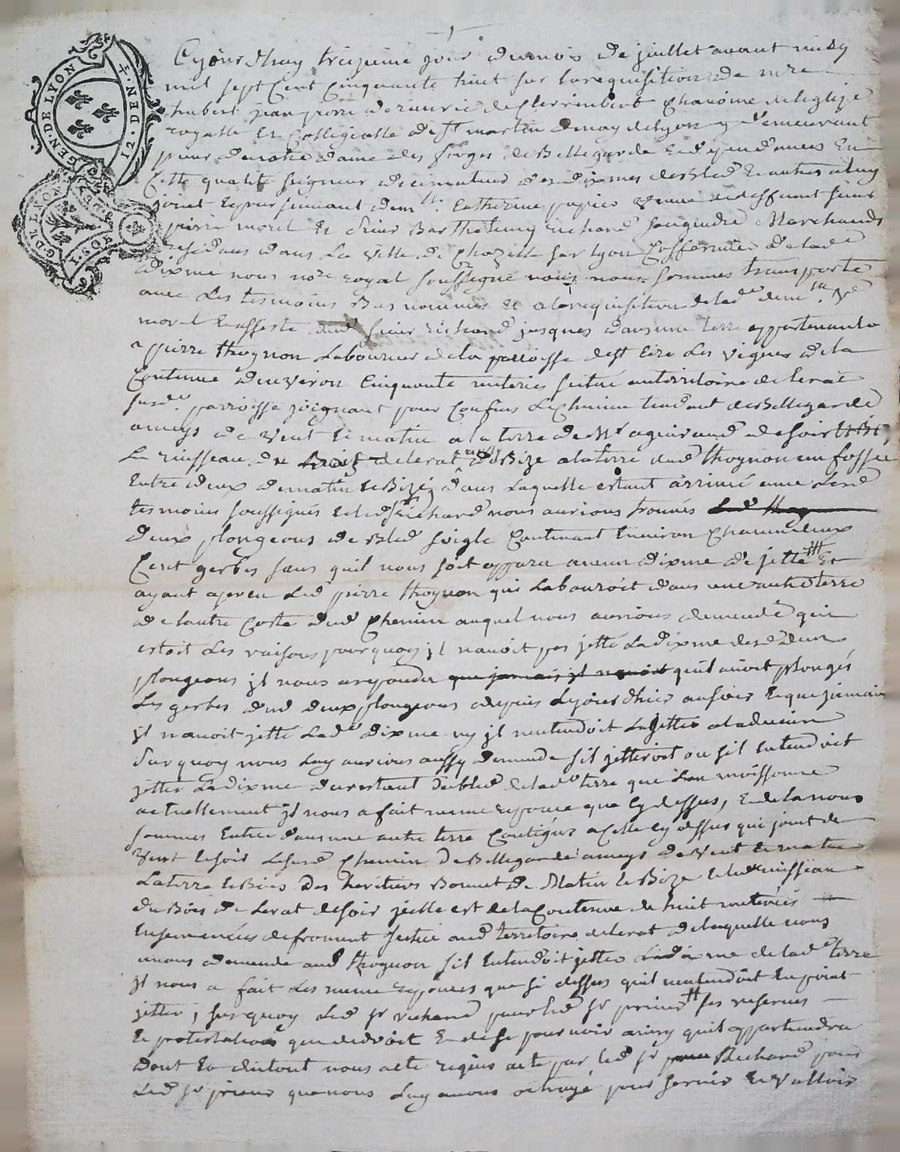 GEN. DE LYON
12. DEN.
G. D. LYON
1
Cejourdhuy treizieme jour du mois de juillet avant midy
mil sept Cent Cinquante huit sur la requisition de mre
hubert jean pierre de clerimbert Chanoine de leglize
royalle Et Collegialle de st martin denay de lyon y demeurant
prieur de notre dame des forges de Bellegarde Et dependances En
Cette quallité seigneur decimateur des dixmes des Bled Et autres a luy
joint Et poursuivant demlle Catherine papier veuve du deffunt sieur
pierre morel Et sieur Barthelemy richard Marchands
residans dans la ville de Chazelle sur lyon de lad
dixme nous nore royal soussigné nous nous sommes transporté
avec Les tesmoins Bas nommés Et a la requisition de lade demlle ve
morel Et assisté dud sieur richard jusques dans une terre appartenante
a pierre thoynon Laboureur de la parroisse de st Les vignes de la
Contenue denviron Cinquante meteries située au territoire de lerat
susde parroisse joignant pour Confins Le Chemin tendant de Bellegarde
de vent Et matin a la terre de mr de soir
Le ruisseau de lerat de Bize a la terre dud thoynon un fossé
Entre deux de matin Et Bize dans laquelle estant arrivé avec Lesd
tesmoins soussignés Et led sr richard nous aurions trouvés
deux plongeons de Bled seigle Contenant Environ Chacun deux
Cent gerbes sans quil nous soit apparu aucun dixme de jetté Et
ayant aperçu Led pierre thoynon qui Labouroit dans une autre terre
de lautre Costé dud Chemin auquel nous aurions demandé quil
estoit Les raisons pourquoy jl navoit pas jetté La dixme desd deux
plongeons jl nous a repondu que jamais jl navoit quil avoit plongés
Les gerbes dud deux plongeons depuis Lejourdhier au soir Et que jamais
jl navoit jetté Lade dixme ny jl nentendoit La jetter a la
Surquoy nous Luy aurions aussy demandé sil jetteroit ou sil Entendoit
jetter La dixme du restant du bled de lade terre que lon moissonne
actuellement jl nous a fait meme reponce que Cy dessus, Et de la nous
sommes Entrée dans une autre terre Contigue a Celle Cy dessus qui joint de
vent Et soir Lesusd Chemin de Bellegarde de vent Et matin
La terre Et Bois des heritiers Bonnet de Matin Et Bize Et le ruisseau
du Bois de Lerat de soir jcelle est de la Contenue de huit meteries
Ensemencées de froment aud territoire de lerat de laquelle nous
avons demandé aud thoynon sil Entendoit jetter La dixme de lade terre
jl nous a fait Les meme reponces que si dessus quil nentendoit En point
jetter, surquoy Led sr richard pour led sr prieur ses reserves
Et protestations que de droit Et de se pourvoir ainsy quil appartiendra
dont Et du tout nous acte requis acte par led sr Richard pour
Led sr prieur que nous Luy avons octroyé pour servir Et valloir